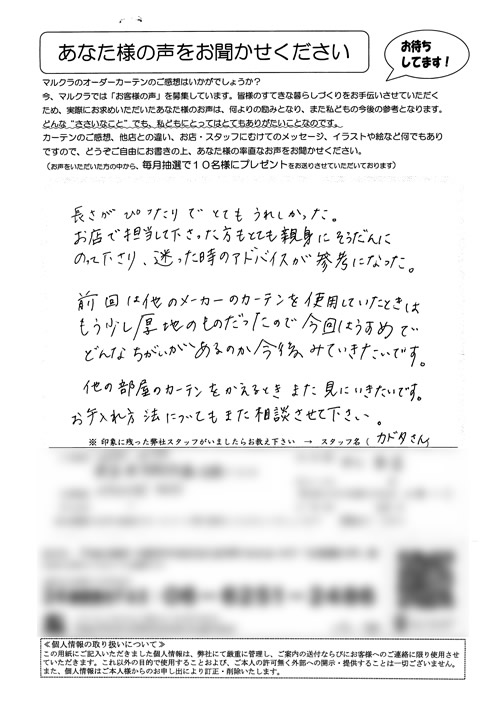 あなた様の声をお聞かせください
お待ち
してます!
マルクラのオーダーカーテンのご感想はいかがでしょうか?
今、マルクラでは「お客様の声」を募集しています。皆様のすてきな暮らしづくりをお手伝いさせていただく
ため、実際にお求めいただいたあなた様のお声は、何よりの励みとなり、また私どもの今後の参考となります。
どんな“ささいなこと”でも、私どもにとってはとてもありがたいことなのです。
カーテンのご感想、他店との違い、お店・スタッフにむけてのメッセージ、イラストや絵など何でもあり
ですので、どうぞご自由にお書きの上、あなた様の率直なお声をお聞かせください。
(お声をいただいた方の中から、毎月抽選で10名様にプレゼントをお送りさせていただいております)
長さがぴったりでとてもうれしかった。
お店で担当して下さった方もとても親身にそうだんに
のって下さり、迷った時のアドバイスが参考になった。
前回は他のメーカーのカーテンを使用していたときは
もう少し厚地のものだったので今回はうすめで
どんなちがいがあるのか今後、みていきたいです。
他の部屋のカーテンをかえるときまた見にいきたいです。
お手入れ方法についてもまた相談させて下さい。
※印象に残った弊社スタッフがいましたらお教え下さい → スタッフ名(カドタさん)
06-6251-2486
≪個人情報の取り扱いについて≫
この用紙にご記入いただきました個人情報は、弊社にて厳重に管理し、ご案内の送付ならびにお客様へのご連絡に限り使用させ
ていただきます。これ以外の目的で使用することおよび、ご本人の許可無く外部への開示・提供することは一切ございません。
また、個人情報はご本人様からのお申し出により訂正・削除いたします。